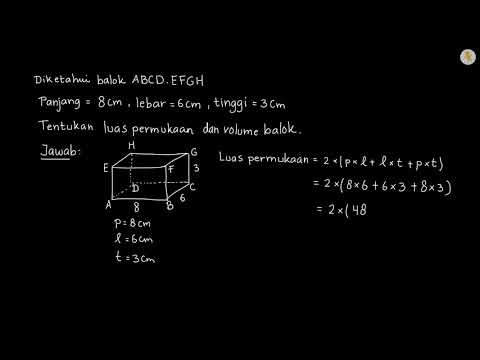 Diketahui balok ABCD.EFGH
Panjang = 8cm, lebar = 6cm, tinggi = 3cm
Tentukan luas permukaan dan volume balok.
Jawab:
H
G
E
F
3
D
C
6
A
8
B
p = 8cm
l = 6cm
t = 3cm
Luas permukaan = 2×(p×l + l×t + p×t)
= 2×(8×6 + 6×3 + 8×3)
= 2×(48